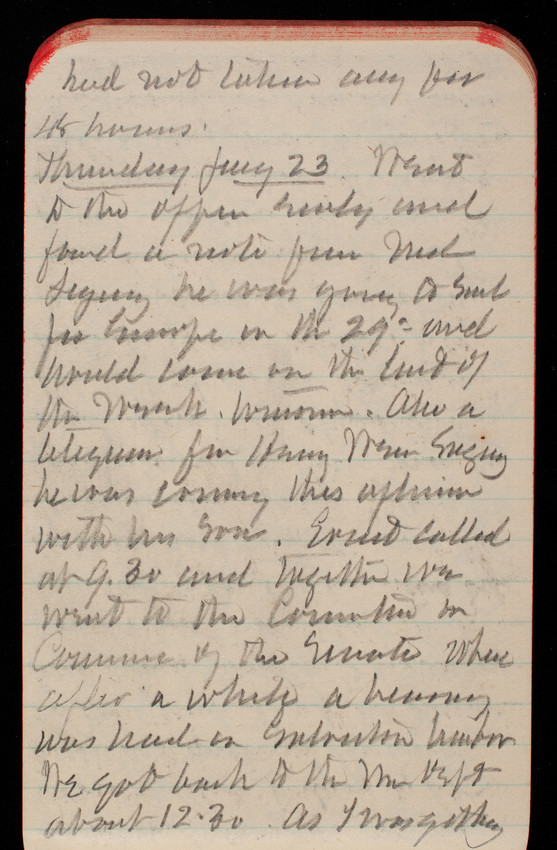 had not taken any for
48 hours.
Thursday Jany 23. Went
to the office early and
found a note from Ned
saying he was going to Sail
for Europe on the 29th and
would come on the last of
the Week. Also a
telegram from Henry Wen saying
he was coming this afternoon
with his Son. Ernst called
at 9.30 and together we
went to the Committee on
Commerce of the Senate where
after a while a hearing
was had on Galveston harbor
We got back to the War Dept
about 12.30 As I was getting